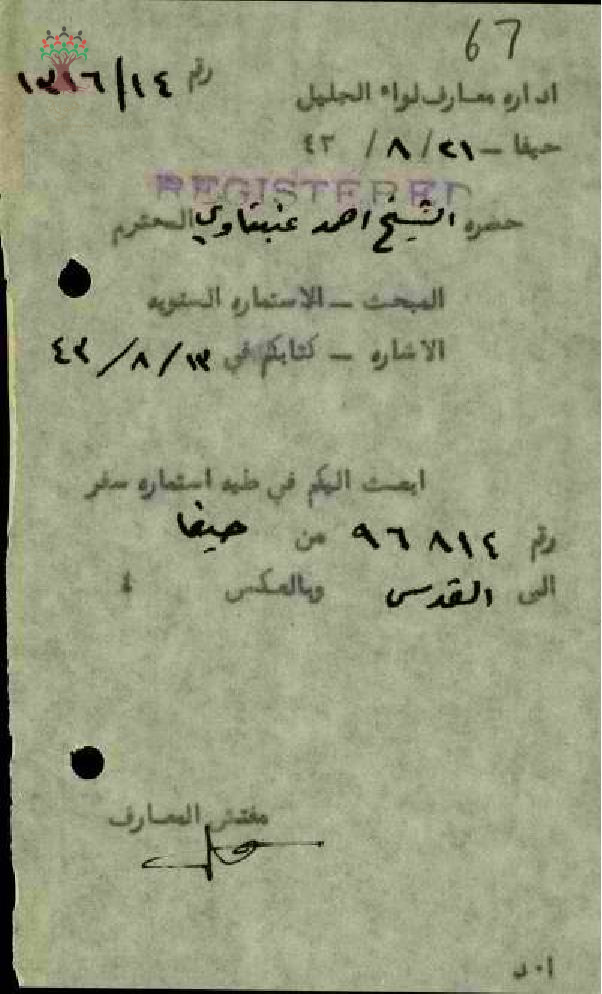 67
رقم ١٤/١٣١٦
اداره معارف لواء الجليل
حيفا – ٢١/٨/ ٤٣
REGISTERED
حضره الشيخ احمد عنبتاوي المحترم
المبحث – الاستماره السنويه
الاشاره – كتابكم في ١٣/٨/٤٣
ابعث اليكم في طيه استماره سفر
رقم ٩٦٨١٤ من حيفا
الى القدس وبالعكس ٤
مفتش المعارف
ا٠د